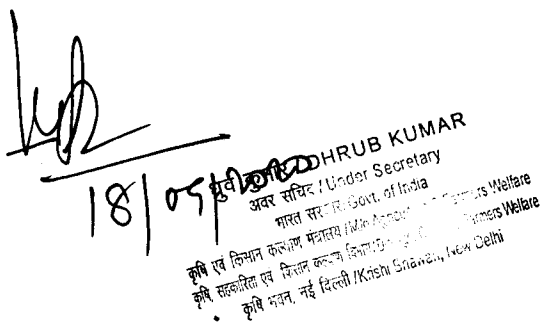 18/05/2020
ध्रुव कुमार/DHRUB KUMAR
अवर सचिव/Under Secretary
भारत सरकार/Govt. of India
कृषि एवं किसान कल्याण मंत्रालय/Min. Farmers Welfare
कृषि, सहकारिता एवं किसान कल्याण विभाग Farmers Welfare
कृषि भवन, नई दिल्ली/Krishi Bhawan, New Delhi